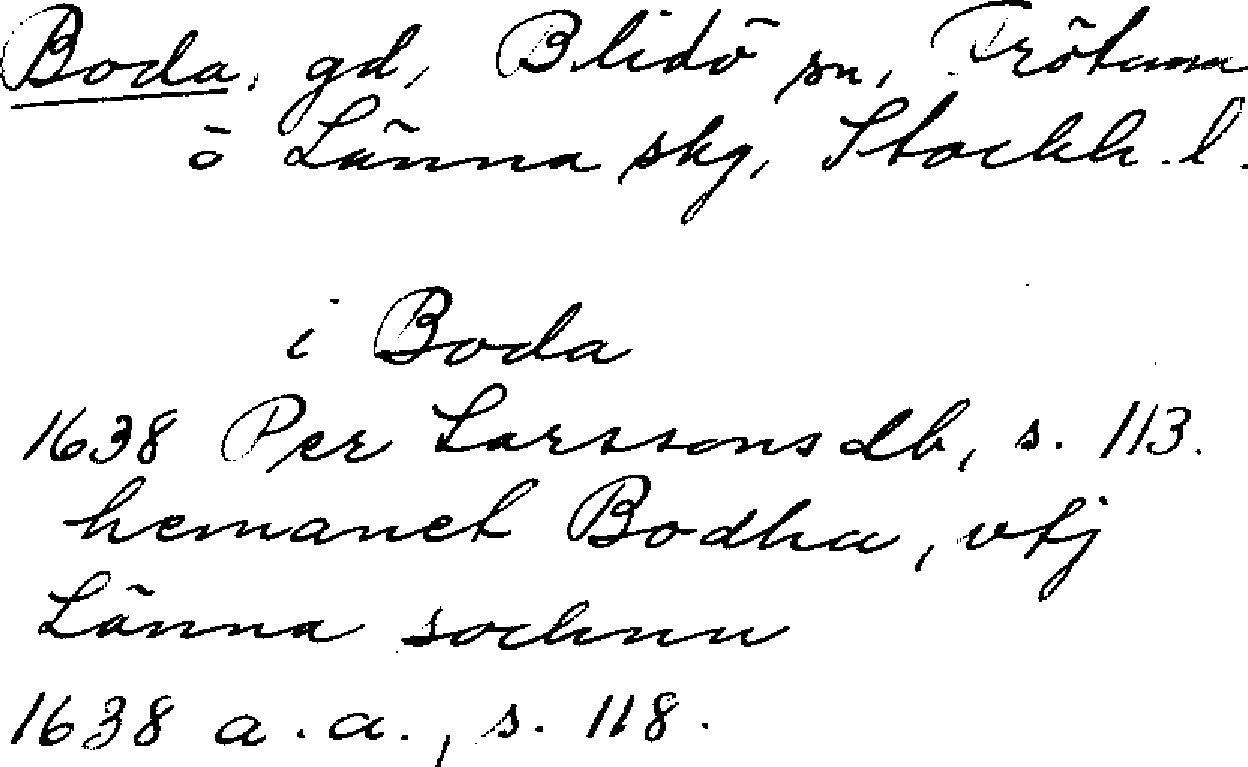 Boda, gd, Blidö sn, Frötuna
o Länna skg, Stockh. l.
i Boda
1638 Per Larssons db, s. 113.
hemanet Bodha, vtj
Länna sochnn
1638 a.a., s. 118.